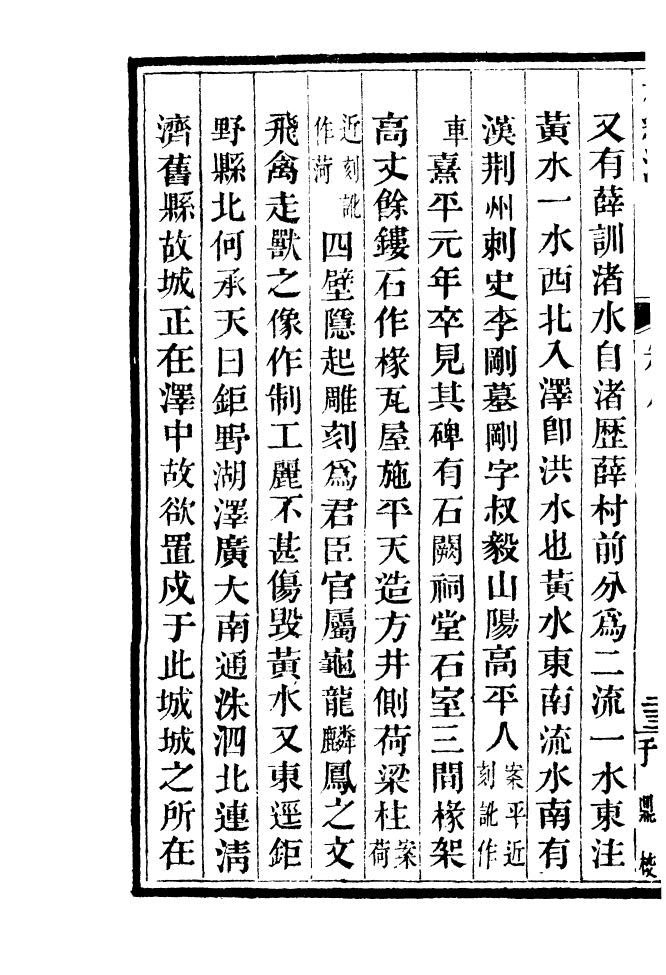 又有薛訓渚水自渚歴薛村前分爲二流一水東注
黃水一水西北入澤卽洪水也黃水東南流水南有
漢荆州刺史李剛墓剛字叔毅山陽高平人案平近刻訛作
車熹平元年卒見其碑有石闕祠堂石室三間椽架
高丈餘鏤石作椽瓦屋施平天造方井側荷梁柱案荷
近刻訛作菏四壁隱起雕刻爲君臣官屬龜龍麟鳳之文
飛禽走獸之像作制工麗不甚傷毀黃水又東逕鉅
野縣北何承天曰鉅野湖澤廣大南通洙泗北連淸
濟舊縣故城正在澤中故欲置戍于此城城之所在